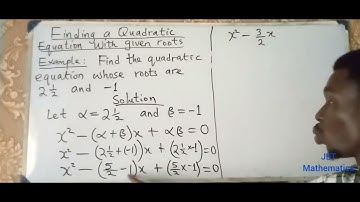 Finding a Quadratic
Equation with given roots
Example: Find the quadratic
equation whose roots are
2½ and -1
Solution
Let α = 2½ and β = -1
x² - (α + β)x + αβ = 0
x² - (2½ + (-1))x + (2½ x -1) = 0
x² - (5/2 - 1)x + (5/2 x -1) = 0
x² - 3/2 x
JET
Mathematics